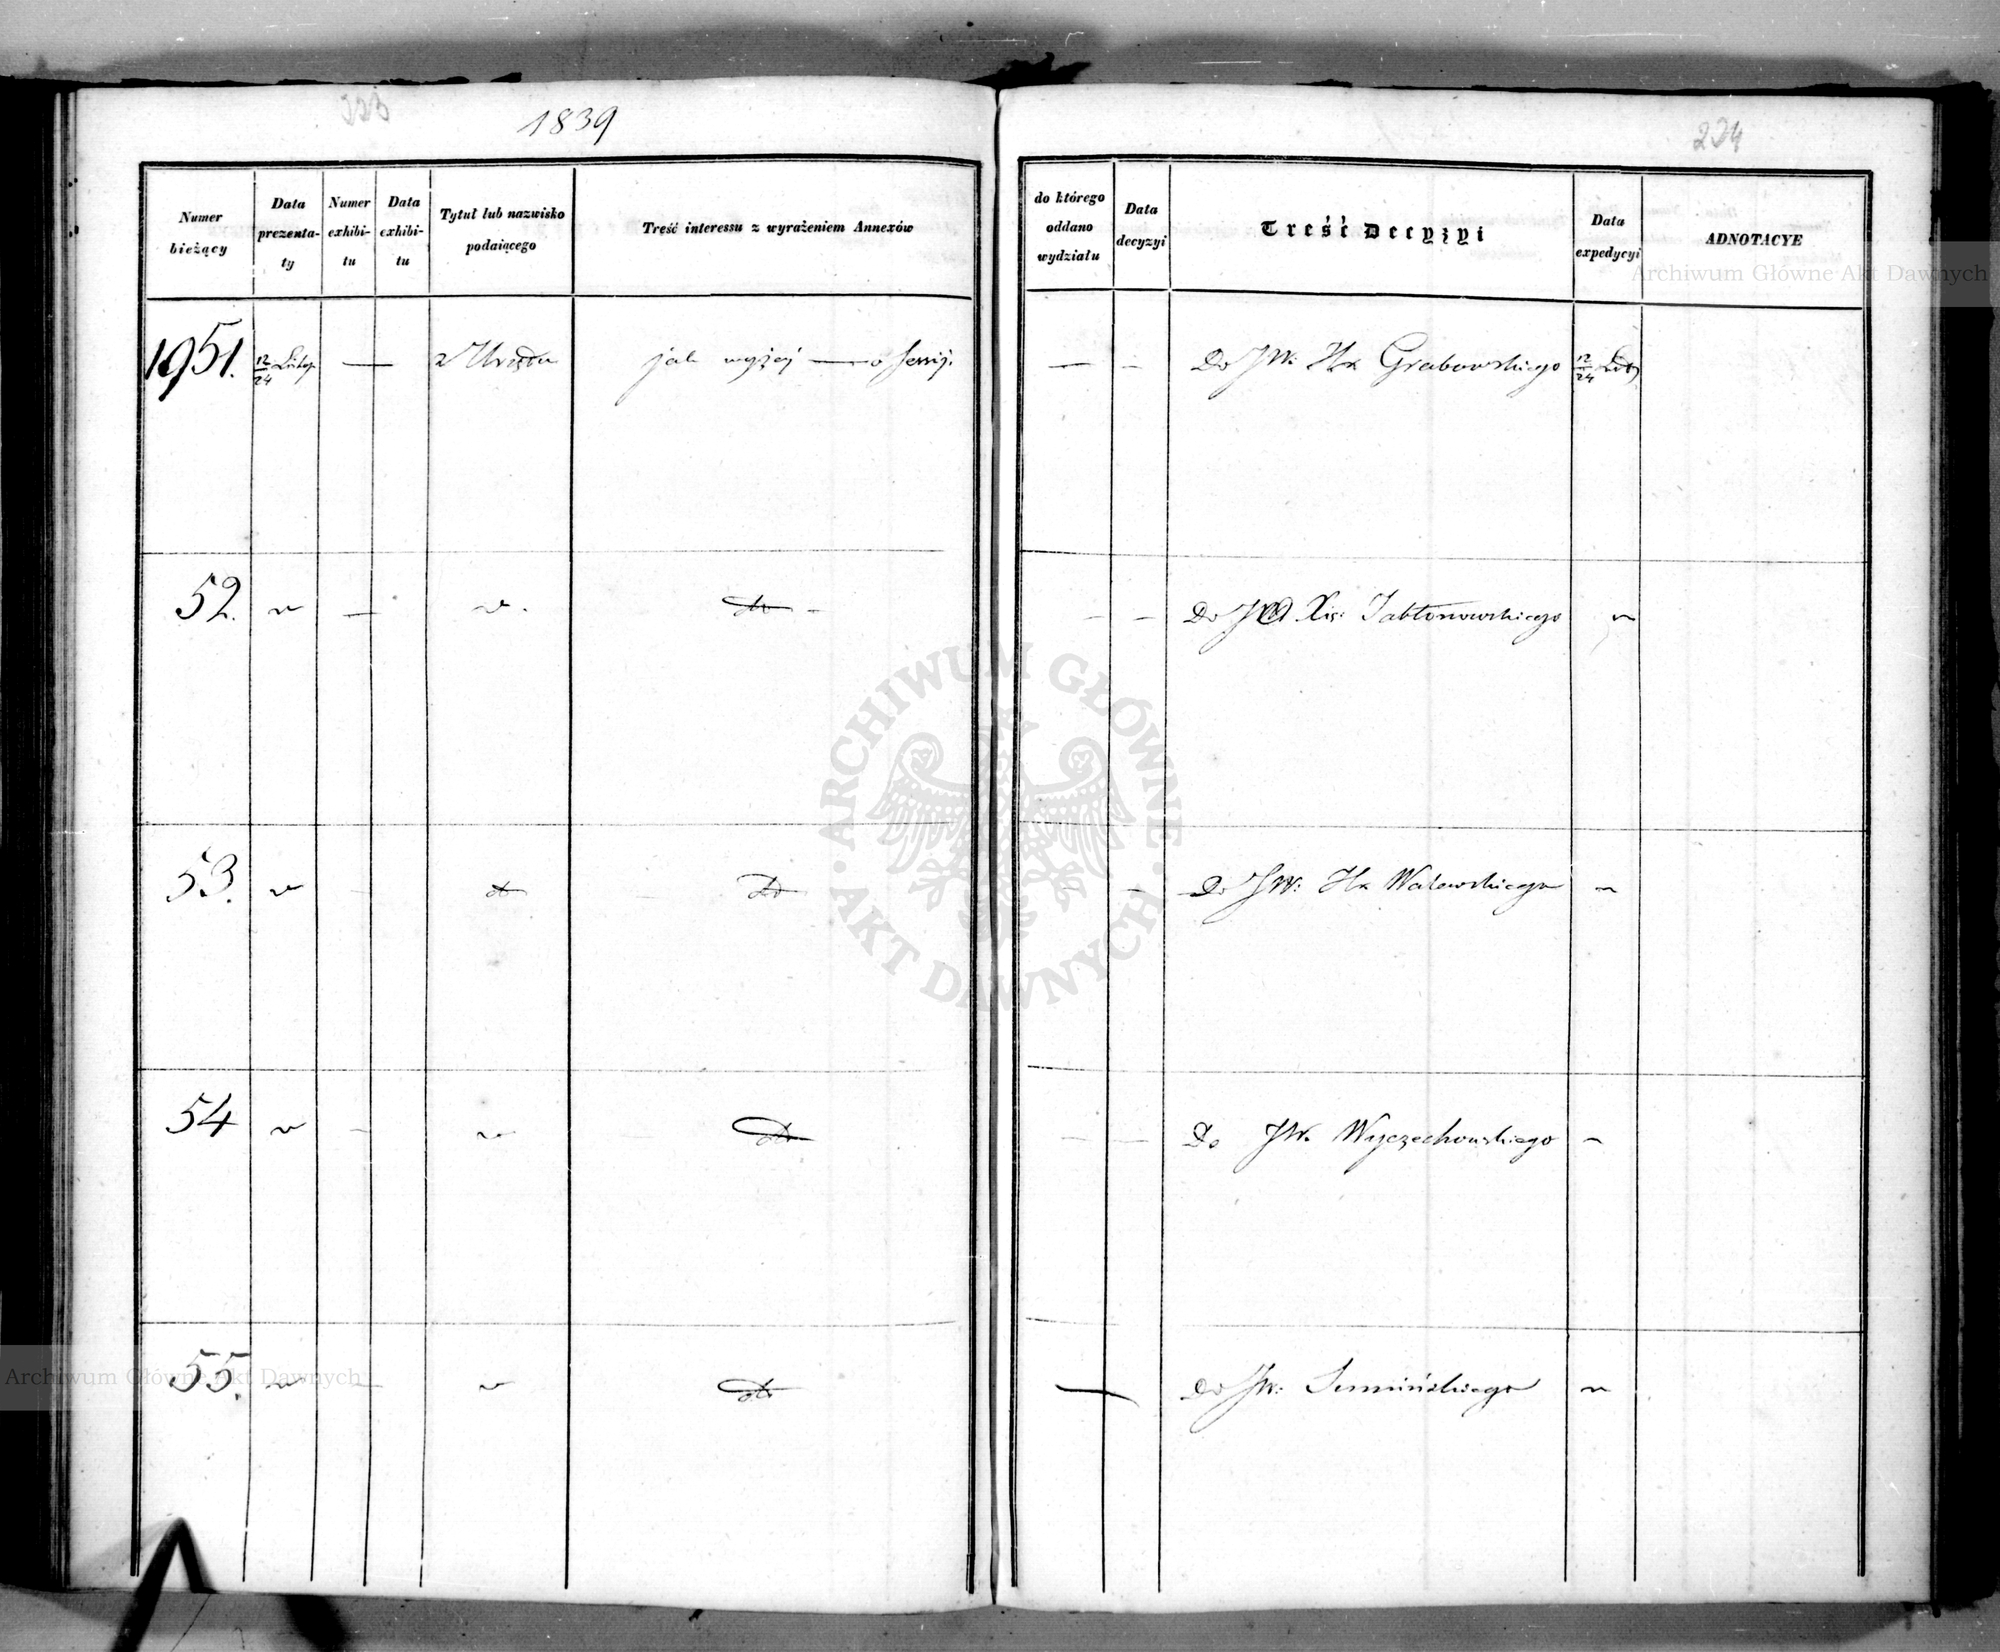 1839
224
Numer bieżący
Data prezentaty
Numer exhibitu
Data exhibitu
Tytuł lub nazwisko podaiącego
Treść interessu z wyrażeniem Annexów
do którego oddano wydziału
Data decyzyi
Treść Decyzyi
Data expedycyi
ADNOTACYE
1951. 12/24 Listop. — z Urzędu jak wyżej — o Sessyi. — — Do JW: Hr. Grabowskiego 12/24 List.
52. — do — — — Do JO Xię: Jabłonowskiego
53. — do do — — Do JW: Hr. Walewskiego
54 — do — — Do JW. Wyczechowskiego
55. — do — Do JW: Sumińskiego
ARCHIWUM GŁÓWNE AKT DAWNYCH
Archiwum Główne Akt Dawnych
Archiwum Główne Akt Dawnych